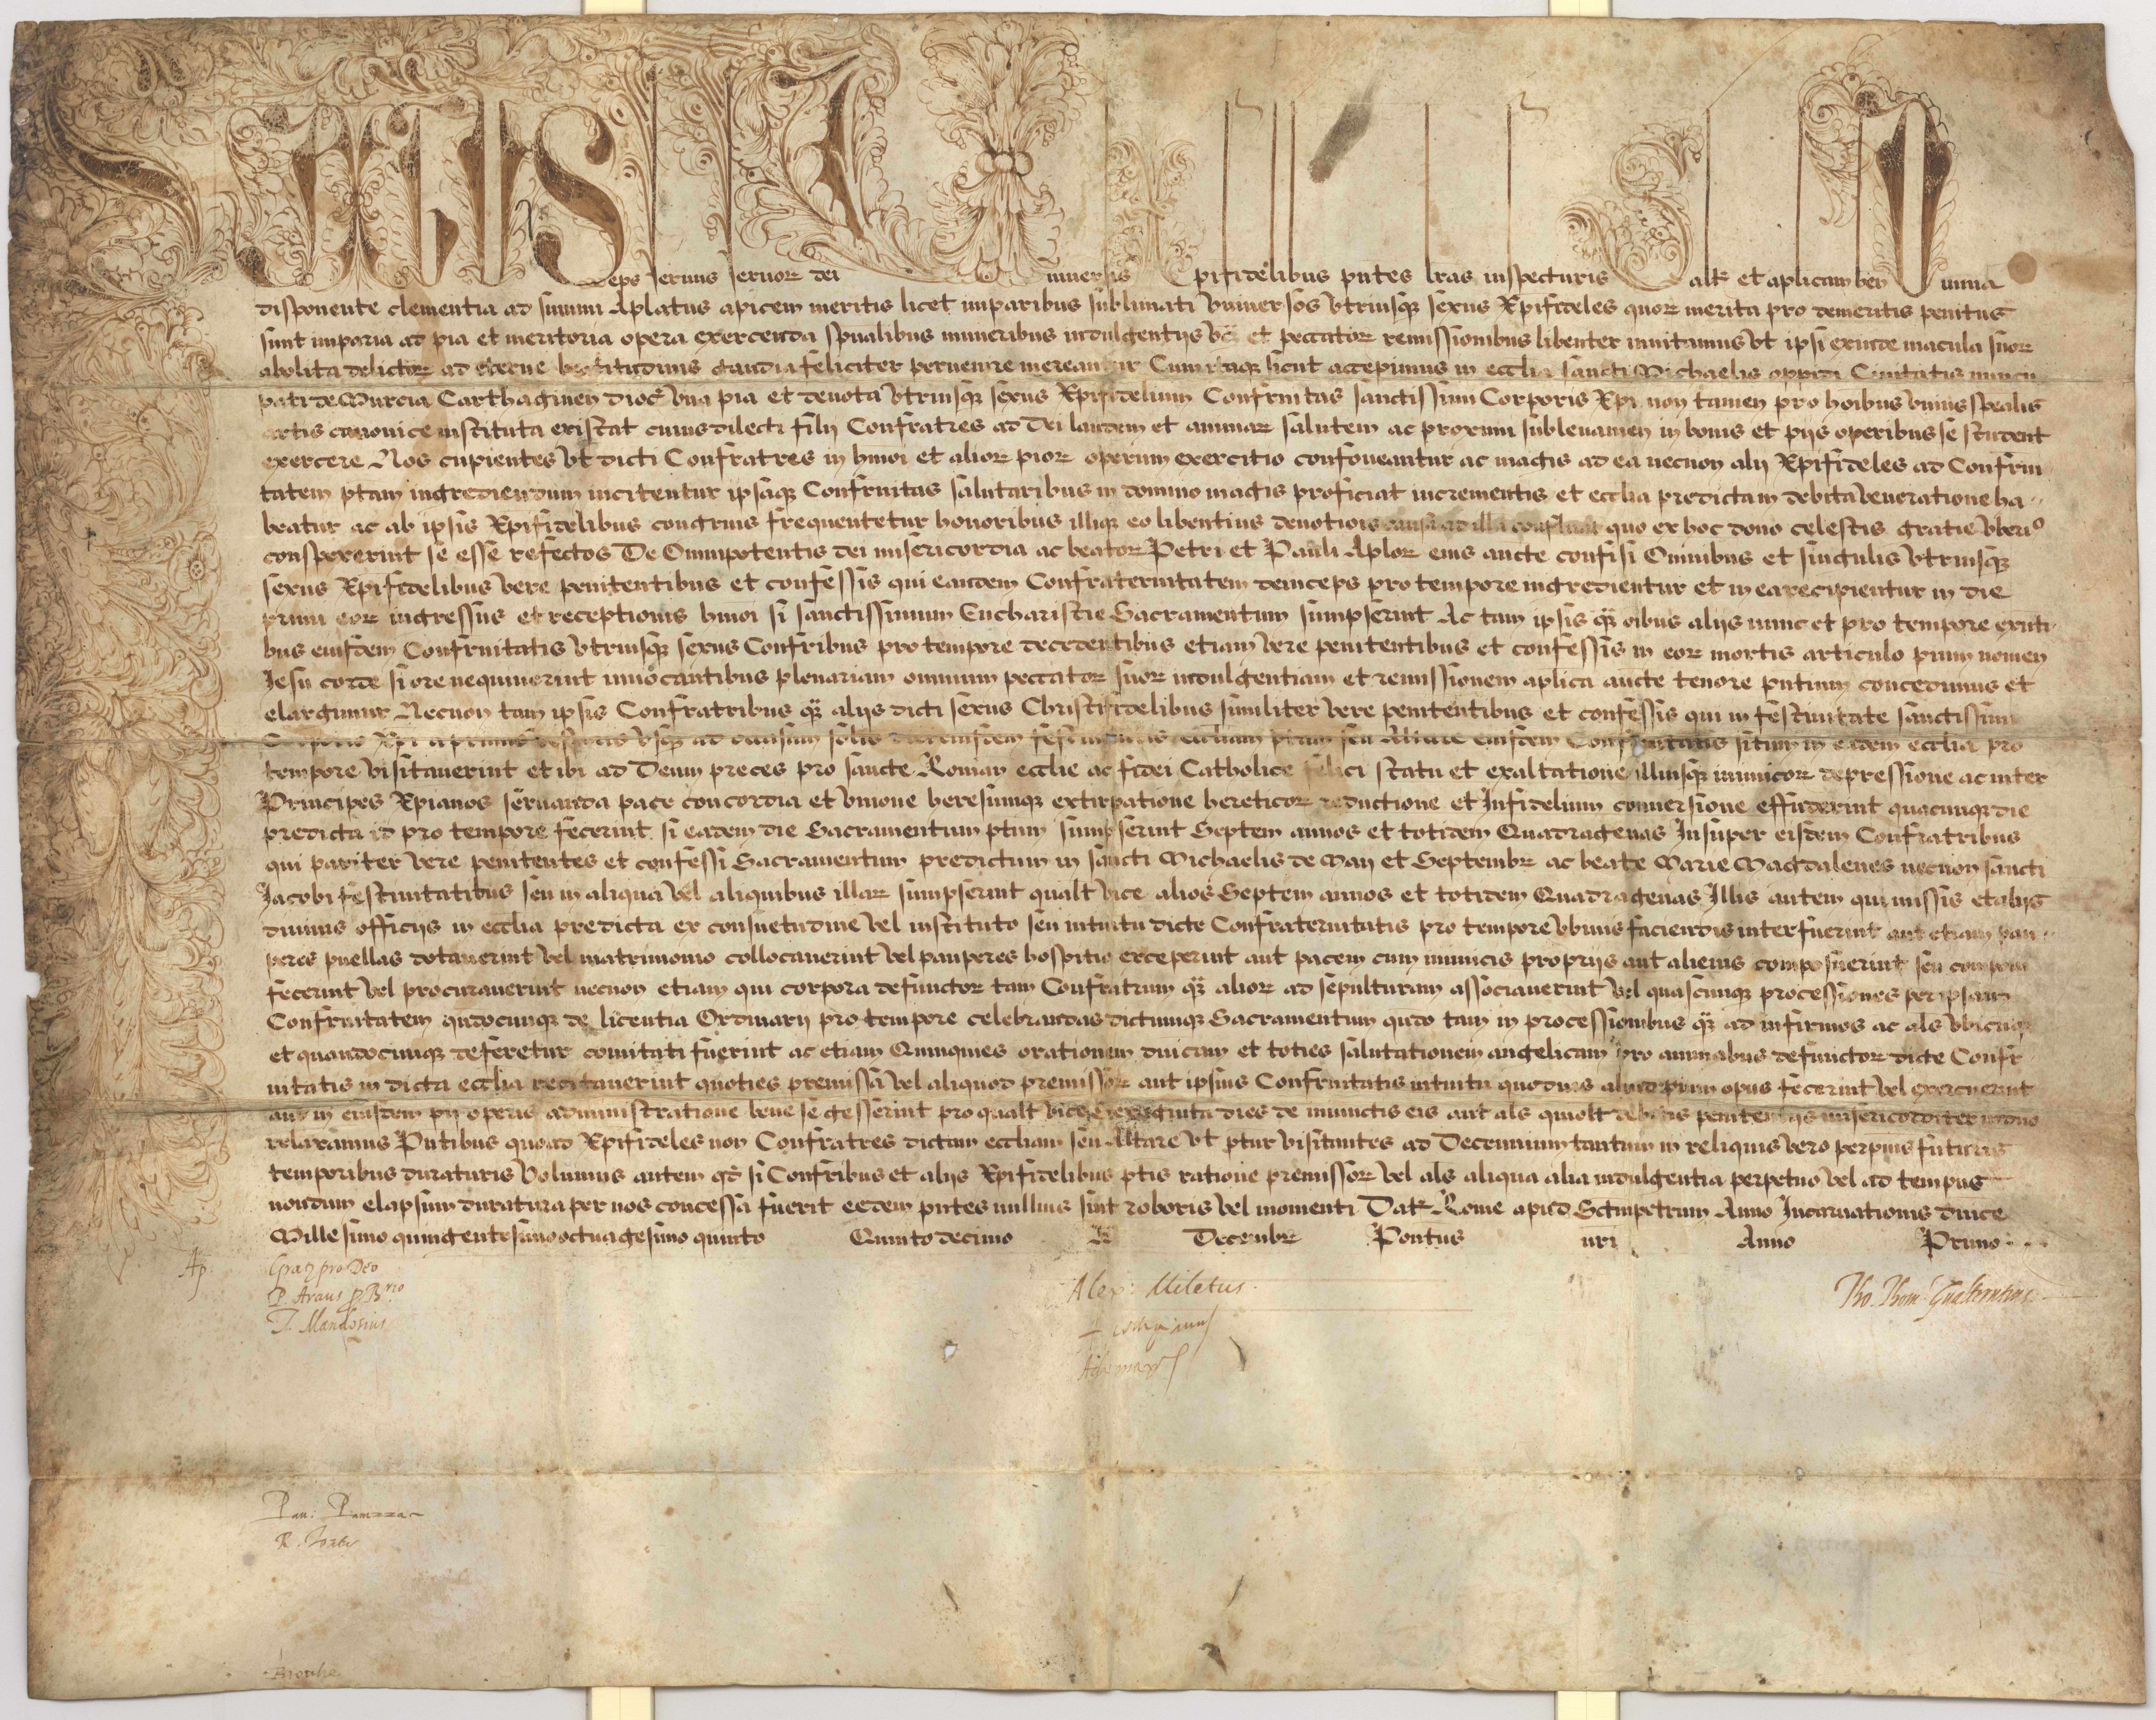 SIXTUS eps seruus seruor dei Vniuersis Xpifidelibus pntes lras inspecturis Saltm et aplicam ben Diuina
disponente clementia ad summi Aplatus apicem meritis licet imparibus sublimati vniuersos vtriusq sexus Xpifideles quor merita pro demeritis penitus
sunt imparia ad pia et meritoria opera exercenda spualibus muneribus indulgentijs vz et peccator remissionibus libenter inuitamus vt ipsi exinde macula suor
abolita delictor ad eterne beatitudinis gaudia feliciter peruenire mereantur Cum itaq sicut accepimus in ecclia sancti Michaelis oppidi Ciuitatis nuncu
pati de Murcia Carthaginen dioc vna pia et deuota vtriusq sexus Xpifidelium Confrnitas sanctissimi Corporis Xpi non tamen pro hoibus vnius spealis
artis canonice instituta existat cuius dilecti filij Confratres ad Dei laudem et animar salutem ac proximi subleuamen in bonis et pijs operibus se student
exercere Nos cupientes vt dicti Confratres in hmoi et alior pior operum exercitio confoueantur ac magis ad ea necnon alij Xpifideles ad Confrni
tatem ptam ingrediendum incitentur ipsaq Confrnitas salutaribus in domino magis proficiat incrementis et ecclia predicta in debita veneratione ha
beatur ac ab ipsis Xpifidelibus congruis frequentetur honoribus illiq eo libentius deuotiois causa ad illa confluant quo ex hoc dono celestis gratie vberi9
conspexerint se esse refectos De Omnipotentis dei misericordia ac beator Petri et Pauli Aplor eius aucte confisi Omnibus et singulis vtriusq
sexus Xpifidelibus vere penitentibus et confessis qui eandem Confraternitatem deinceps pro tempore ingredientur et in ea recipientur in die
primi eor ingressus et receptionis hmoi si sanctissimum Eucharistie Sacramentum sumpserint Ac tam ipsis q oibus alijs nunc et pro tempore exnti
bus eiusdem Confrnitatis vtriusq sexus Confribus pro tempore decedentibus etiam vere penitentibus et confessis in eor mortis articulo pium nomen
Jesu corde si ore nequiuerint inuocantibus plenariam omnium peccator suor indulgentiam et remissionem aplica aucte tenore pntium concedimus et
elargimur Necnon tam ipsis Confratribus q alijs dicti sexus Christifidelibus similiter vere penitentibus et confessis qui in festiuitate sanctissimi
Corporis Xpi a primis vesperis vsq ad occasum solis eiusdem festiuitatis eccliam ptam seu Altare eiusdem Confrnitatis situm in eadem ecclia pro
tempore visitauerint et ibi ad Deum preces pro sancte Roman ecclie ac fidei Catholice felici statu et exaltatione illiusq inimicor depressione ac inter
Principes Xpianos seruanda pace concordia et vnione heresumq extirpatione hereticor reductione et Infidelium conuersione effuderint quacunq die
predicta id pro tempore fecerint si eadem die Sacramentum ptum sumpserint Septem annos et totidem Quadragenas Insuper eisdem Confratribus
qui pariter vere penitentes et confessi Sacramentum predictum in sancti Michaelis de Maij et Septembr ac beate Marie Magdalenes necnon sancti
Jacobi festiuitatibus seu in aliqua vel aliquibus illar sumpserint qualt vice alios Septem annos et totidem Quadragenas Illis autem qui missis et alijs
diuinis officijs in ecclia predicta ex consuetudine vel instituto seu intuitu dicte Confraternitatis pro tempore vbiuis faciendis interfuerint aut etiam pau
peres puellas dotauerint vel matrimonio collocauerint vel pauperes hospitio exceperint aut pacem cum inimicis proprijs aut alienis composuerint seu componi
fecerint vel procurauerint necnon etiam qui corpora defunctor tam Confratrum q alior ad sepulturam associauerint vel quascunq processiones per ipsam
Confrnitatem qndocunq de licentia Ordinarij pro tempore celebrandas dictumq Sacramentum qndo tam in processionibus q ad infirmos ac als vbicunq
et quandocunq deferetur comitati fuerint ac etiam Quinquies orationem dnicam et toties salutationem angelicam pro animabus defunctor dicte Confr
nitatis in dicta ecclia recitauerint quoties premissa vel aliquod premissor aut ipsius Confrnitatis intuitu quoduis aliud pium opus fecerint vel exercuerint
aut in eiusdem pij operis administratione bene se gesserint pro qualt vice sexaginta dies de iniunctis eis aut als quolt debitis penitentijs misericorditer in dno
relaxamus Pntibus quoad Xpifideles non Confratres dictam eccliam seu Altare vt ptur visitantes ad Decennium tantum in reliquis vero perpuis futuris
temporibus duraturis Volumus autem qd si Confribus et alijs Xpifidelibus ptis ratione premissor vel als aliqua alia indulgentia perpetuo vel ad tempus
nondum elapsum duratura per nos concessa fuerit eedem pntes nullius sint roboris vel momenti Dat Rome apud Sctmpetrum Anno Incarnationis dnice
Millesimo quingentesimo octuagesimo quinto Quinto decimo K Decembr Pontus nri Anno Primo
Ap Graz pro Deo Alex: Miletus. Tho. Thom. Gualterutius
P. Araus